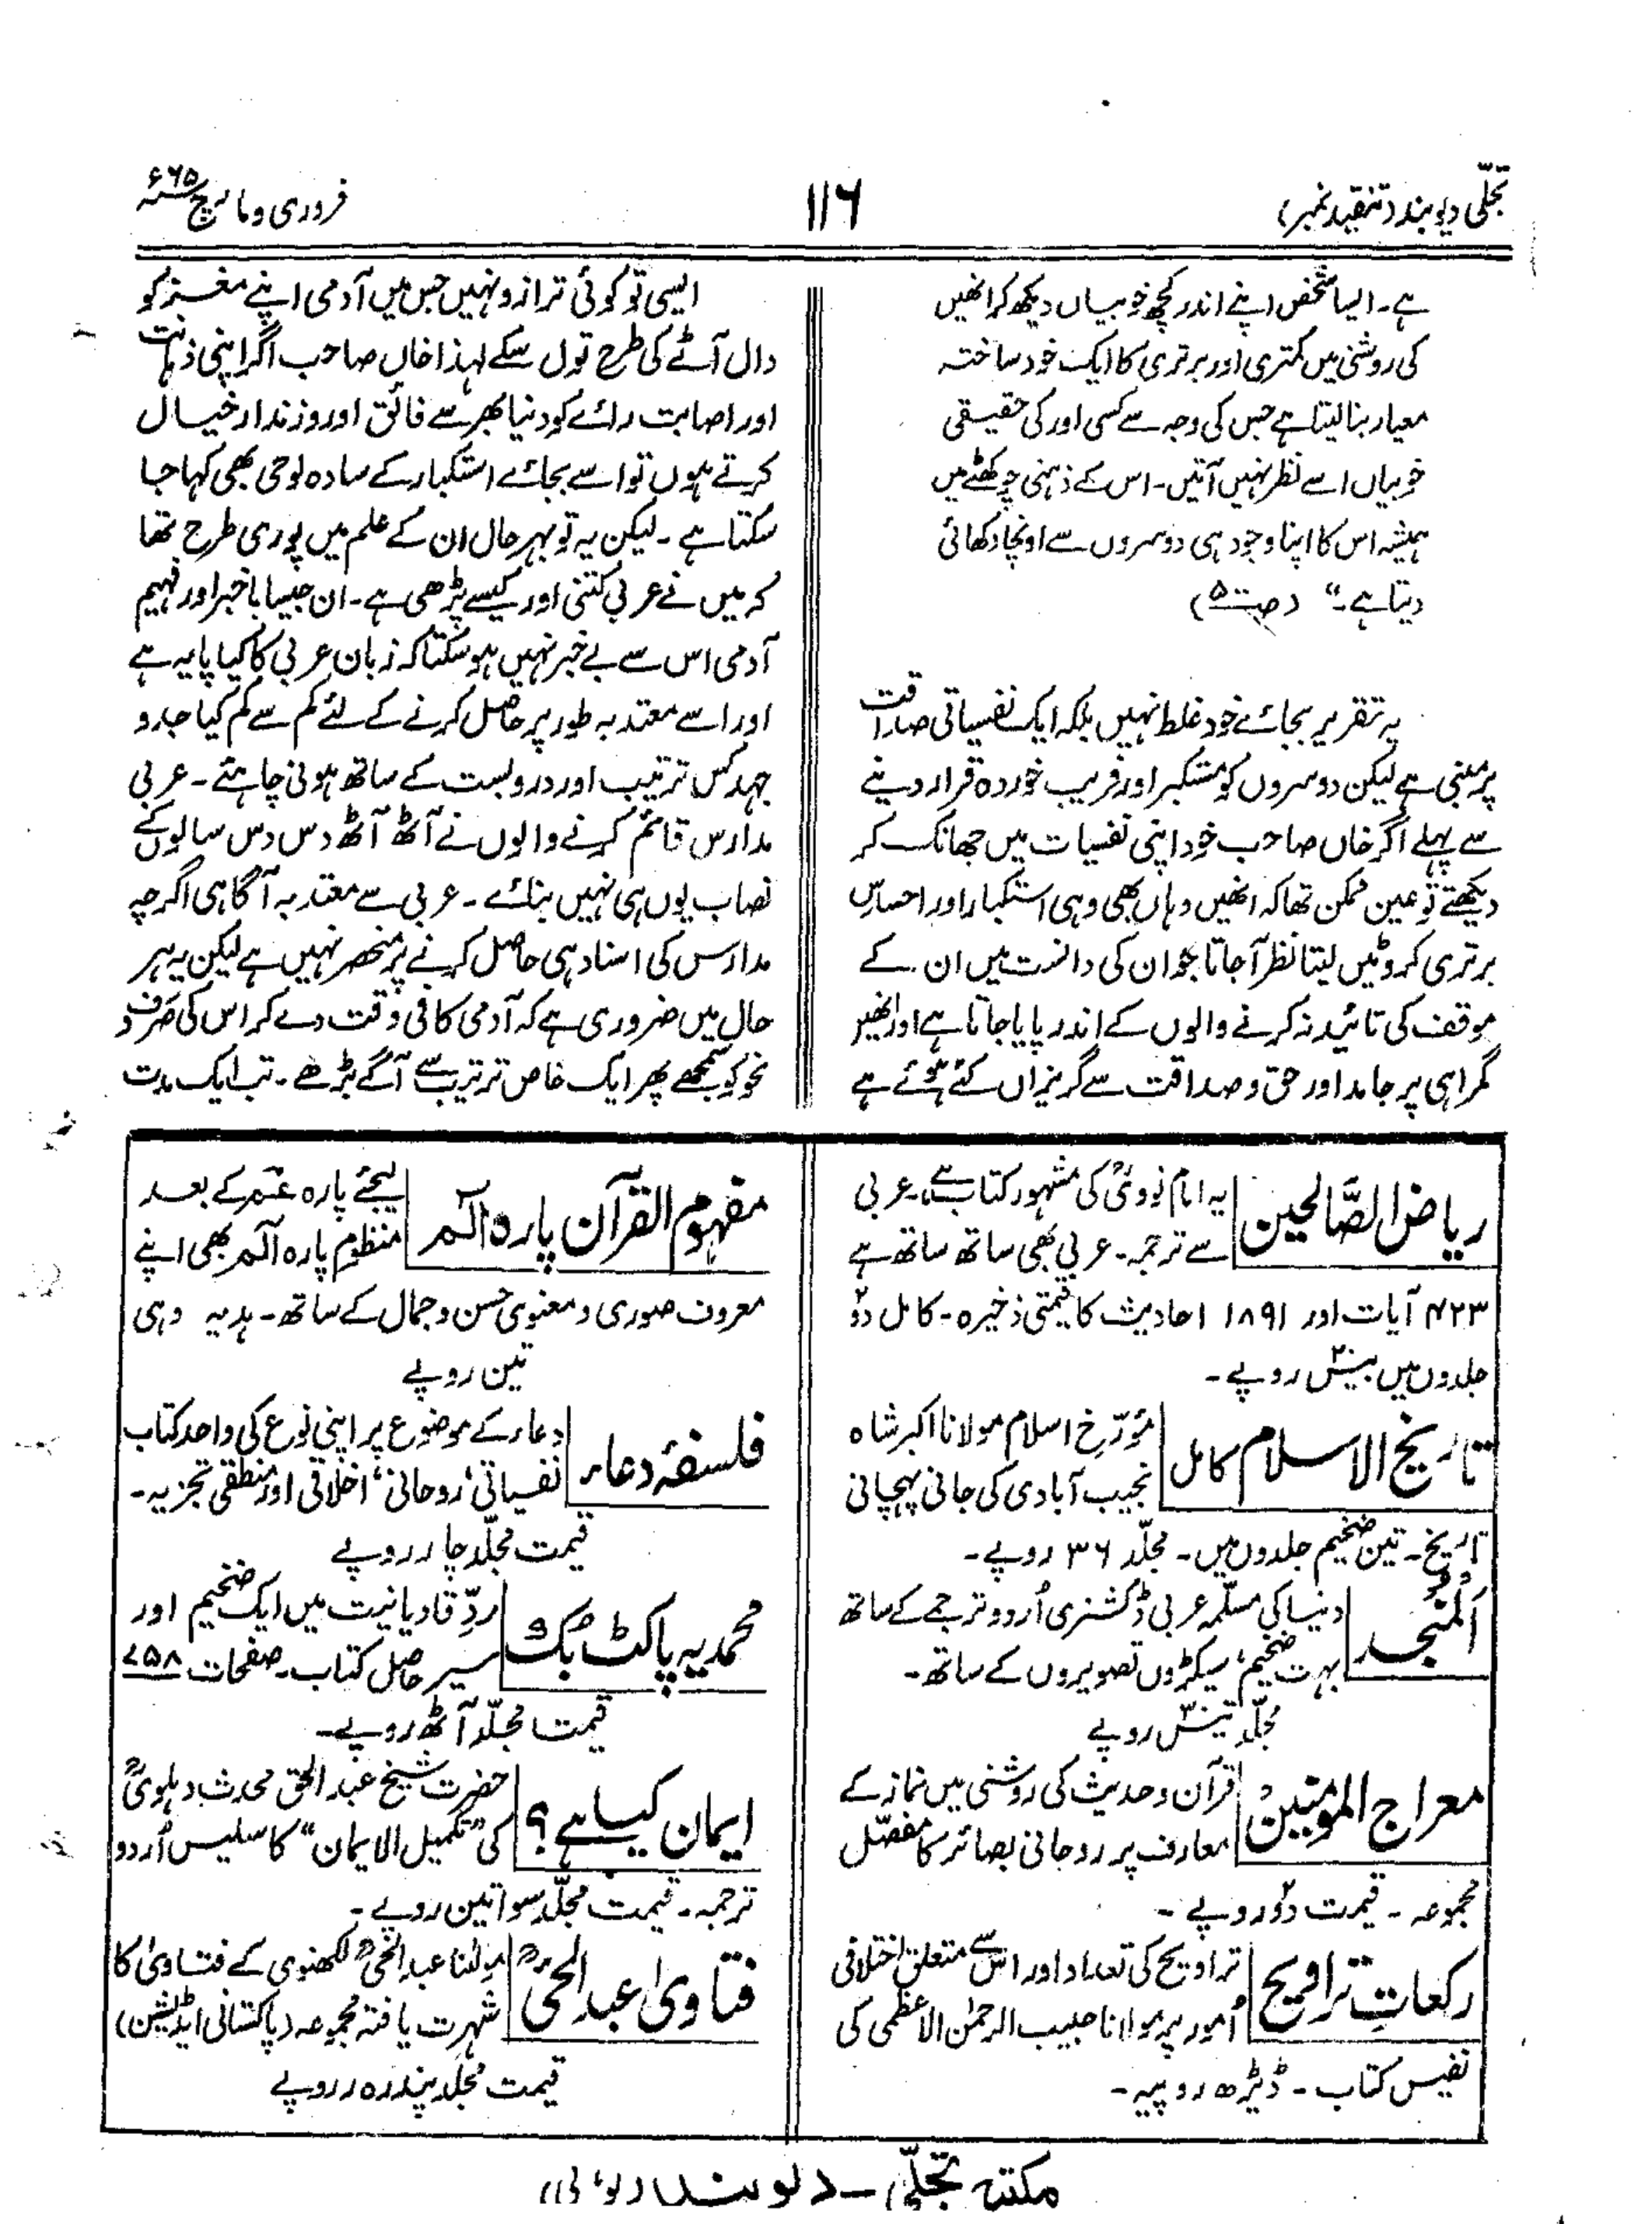 تجلّی دیوبند (تنقید نمبر)
۱۱۶
فروری و مارچ سنہ ۶۵ء
ہے۔ ایسا شخص اپنے اندر کچھ خوبیاں دیکھ کر انھیں
کی روشنی میں کمتری اور برتری کا ایک خود ساختہ
معیار بنا لیتا ہے جس کی وجہ سے کسی اور کی حقیقی
خوبیاں اسے نظر نہیں آتیں۔ اس کے ذہنی چوکھٹے میں
ہمیشہ اس کا اپنا وجود ہی دوسروں سے اونچا دکھائی
دیتا ہے۔“ (ص۵)
یہ تقریر بجائے خود غلط نہیں بلکہ ایک نفسیاتی صداقت
پر مبنی ہے لیکن دوسروں کو متکبر اور فریب خوردہ قرار دینے
سے پہلے اگر خاں صاحب خود اپنی نفسیات میں جھانک کر
دیکھتے تو عین ممکن تھا کہ انھیں وہاں بھی وہی استکبار اور احساسِ
برتری کروٹیں لیتا نظر آجاتا جو ان کی دانست میں ان کے
موقف کی تائید نہ کرنے والوں کے اندر پایا جاتا ہے اور انھیں
گمراہی پر جامد اور حق و صداقت سے گریزاں کئے ہوئے ہے
ایسی تو کوئی ترازو نہیں جس میں آدمی اپنے مغز کو
دال آٹے کی طرح تول سکے لہذا خاں صاحب اگر اپنی ذہانت
اور اصابت رائے کو دنیا بھر سے فائق اور وزندار خیال
کرتے ہوں تو اسے بجائے استکبار کے سادہ لوحی بھی کہا جا
سکتا ہے۔ لیکن یہ تو بہرحال ان کے علم میں پوری طرح تھا
کہ میں نے عربی کتنی اور کیسے پڑھی ہے۔ ان جیسا باخبر اور فہیم
آدمی اس سے بے خبر نہیں ہو سکتا کہ زبان عربی کا کیا پایہ ہے
اور اسے معتدبہ طور پر حاصل کرنے کے لئے کم سے کم کیا جدو
جہد کس ترتیب اور دروبست کے ساتھ ہونی چاہئے۔ عربی
مدارس قائم کرنے والوں نے آٹھ آٹھ دس دس سالوں کے
نصاب یوں ہی نہیں بنائے۔ عربی سے معتدبہ آگاہی اگرچہ
مدارس کی اسناد ہی حاصل کرنے پر منحصر نہیں ہے لیکن یہ ہر
حال میں ضروری ہے کہ آدمی کافی وقت دے کر اس کی صَرف و
نحو کو سمجھے پھر ایک خاص ترتیب سے آگے بڑھے۔ تب ایک مدت
ریاض الصَّالحین
یہ امام نوویؒ کی مشہور کتاب ہے، عربی
سے ترجمہ۔ عربی بھی ساتھ ساتھ ہے
۴۲۳ آیات اور ۱۸۹۱ احادیث کا قیمتی ذخیرہ۔ کامل دو
جلدوں میں بیس۲۰ روپے۔
تاریخ الاسلام کامل
مؤرّخِ اسلام مولانا اکبر شاہ
نجیب آبادی کی جانی پہچانی
تاریخ۔ تین ضخیم جلدوں میں۔ مجلّد ۳۶ روپے۔
اَلمُنجُد
دنیا کی مسلّمہ عربی ڈکشنری اُردو ترجمے کے ساتھ
بہت ضخیم، سیکڑوں تصویروں کے ساتھ۔
مجلّد تیس۳۰ روپے
معراج المومنین
قرآن و حدیث کی روشنی میں نماز کے
معارف پر روحانی بصائر کا مفصّل
مجموعہ۔ قیمت دو۲ روپے۔
رکعاتِ تراویح
تراویح کی تعداد اور اس سے متعلق اختلافی
اُمور پر مولانا حبیب الرحمٰن الاعظمی کی
نفیس کتاب۔ ڈیڑھ روپیہ۔
مفہوم القرآن پارہ الٓمّٓ
لیجئے پارہ عَمَّ کے بعد
منظوم پارہ الٓمّٓ بھی اپنے
معروف صوری و معنوی حسن و جمال کے ساتھ۔ ہدیہ وہی
تین روپے
فلسفۂ دعاء
دعاء کے موضوع پر اپنی نوع کی واحد کتاب
نفسیاتی، روحانی، اخلاقی اور منطقی تجزیہ۔
قیمت مجلّد چار روپے
محمدیہ پاکٹ بُک
ردِّ قادیانیت میں ایک ضخیم اور
سیر حاصل کتاب۔ صفحات ۷۵۸
قیمت مجلّد آٹھ روپے۔
ایمان کیا ہے؟
حضرت شیخ عبدالحق محدث دہلویؒ
کی ”تکمیل الایمان“ کا سلیس اُردو
ترجمہ۔ قیمت مجلّد سوا تین روپے۔
فتاویٰ عبدالحیؒ
مولٰنا عبدالحیؒ لکھنوی کے فتاویٰ کا
شہرت یافتہ مجموعہ (پاکستانی ایڈیشن)
قیمت مجلّد پندرہ روپے
مکتبہ تجلّی – دیوبند (یو، پی)